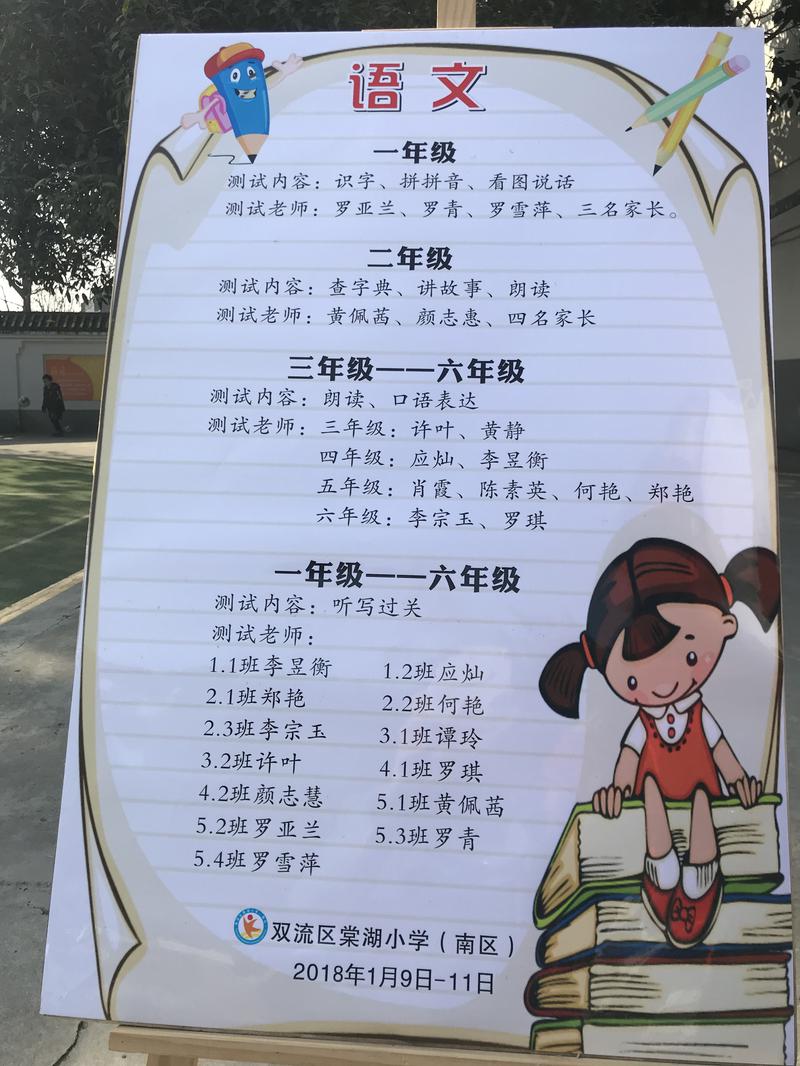 语文
一年级
测试内容：识字、拼拼音、看图说话
测试老师：罗亚兰、罗青、罗雪萍、三名家长。
二年级
测试内容：查字典、讲故事、朗读
测试老师：黄佩茜、颜志惠、四名家长
三年级——六年级
测试内容：朗读、口语表达
测试老师：三年级：许叶、黄静
四年级：应灿、李昱衡
五年级：肖霞、陈素英、何艳、郑艳
六年级：李宗玉、罗琪
一年级——六年级
测试内容：听写过关
测试老师：
1.1班李昱衡 1.2班应灿
2.1班郑艳 2.2班何艳
2.3班李宗玉 3.1班谭玲
3.2班许叶 4.1班罗琪
4.2班颜志慧 5.1班黄佩茜
5.2班罗亚兰 5.3班罗青
5.4班罗雪萍
双流区棠湖小学（南区）
2018年1月9日-11日